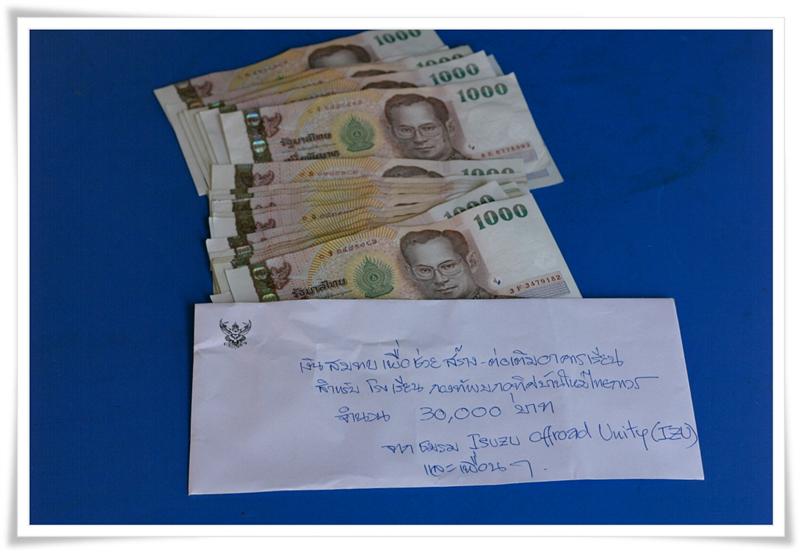 1000
1000
1000
รัฐบาลไทย
1000
1000
รัฐบาลไทย
3F 3479182
เงินสมทบเพื่อช่วยสร้าง-ต่อเติมอาคารเรียน
สำหรับ โรงเรียน กองทัพบกอุทิศบ้านใหม่ไทยถาวร
จำนวน 30,000 บาท
จาก ชมรม Isuzu offroad Unity (IZU)
และเพื่อนๆ.